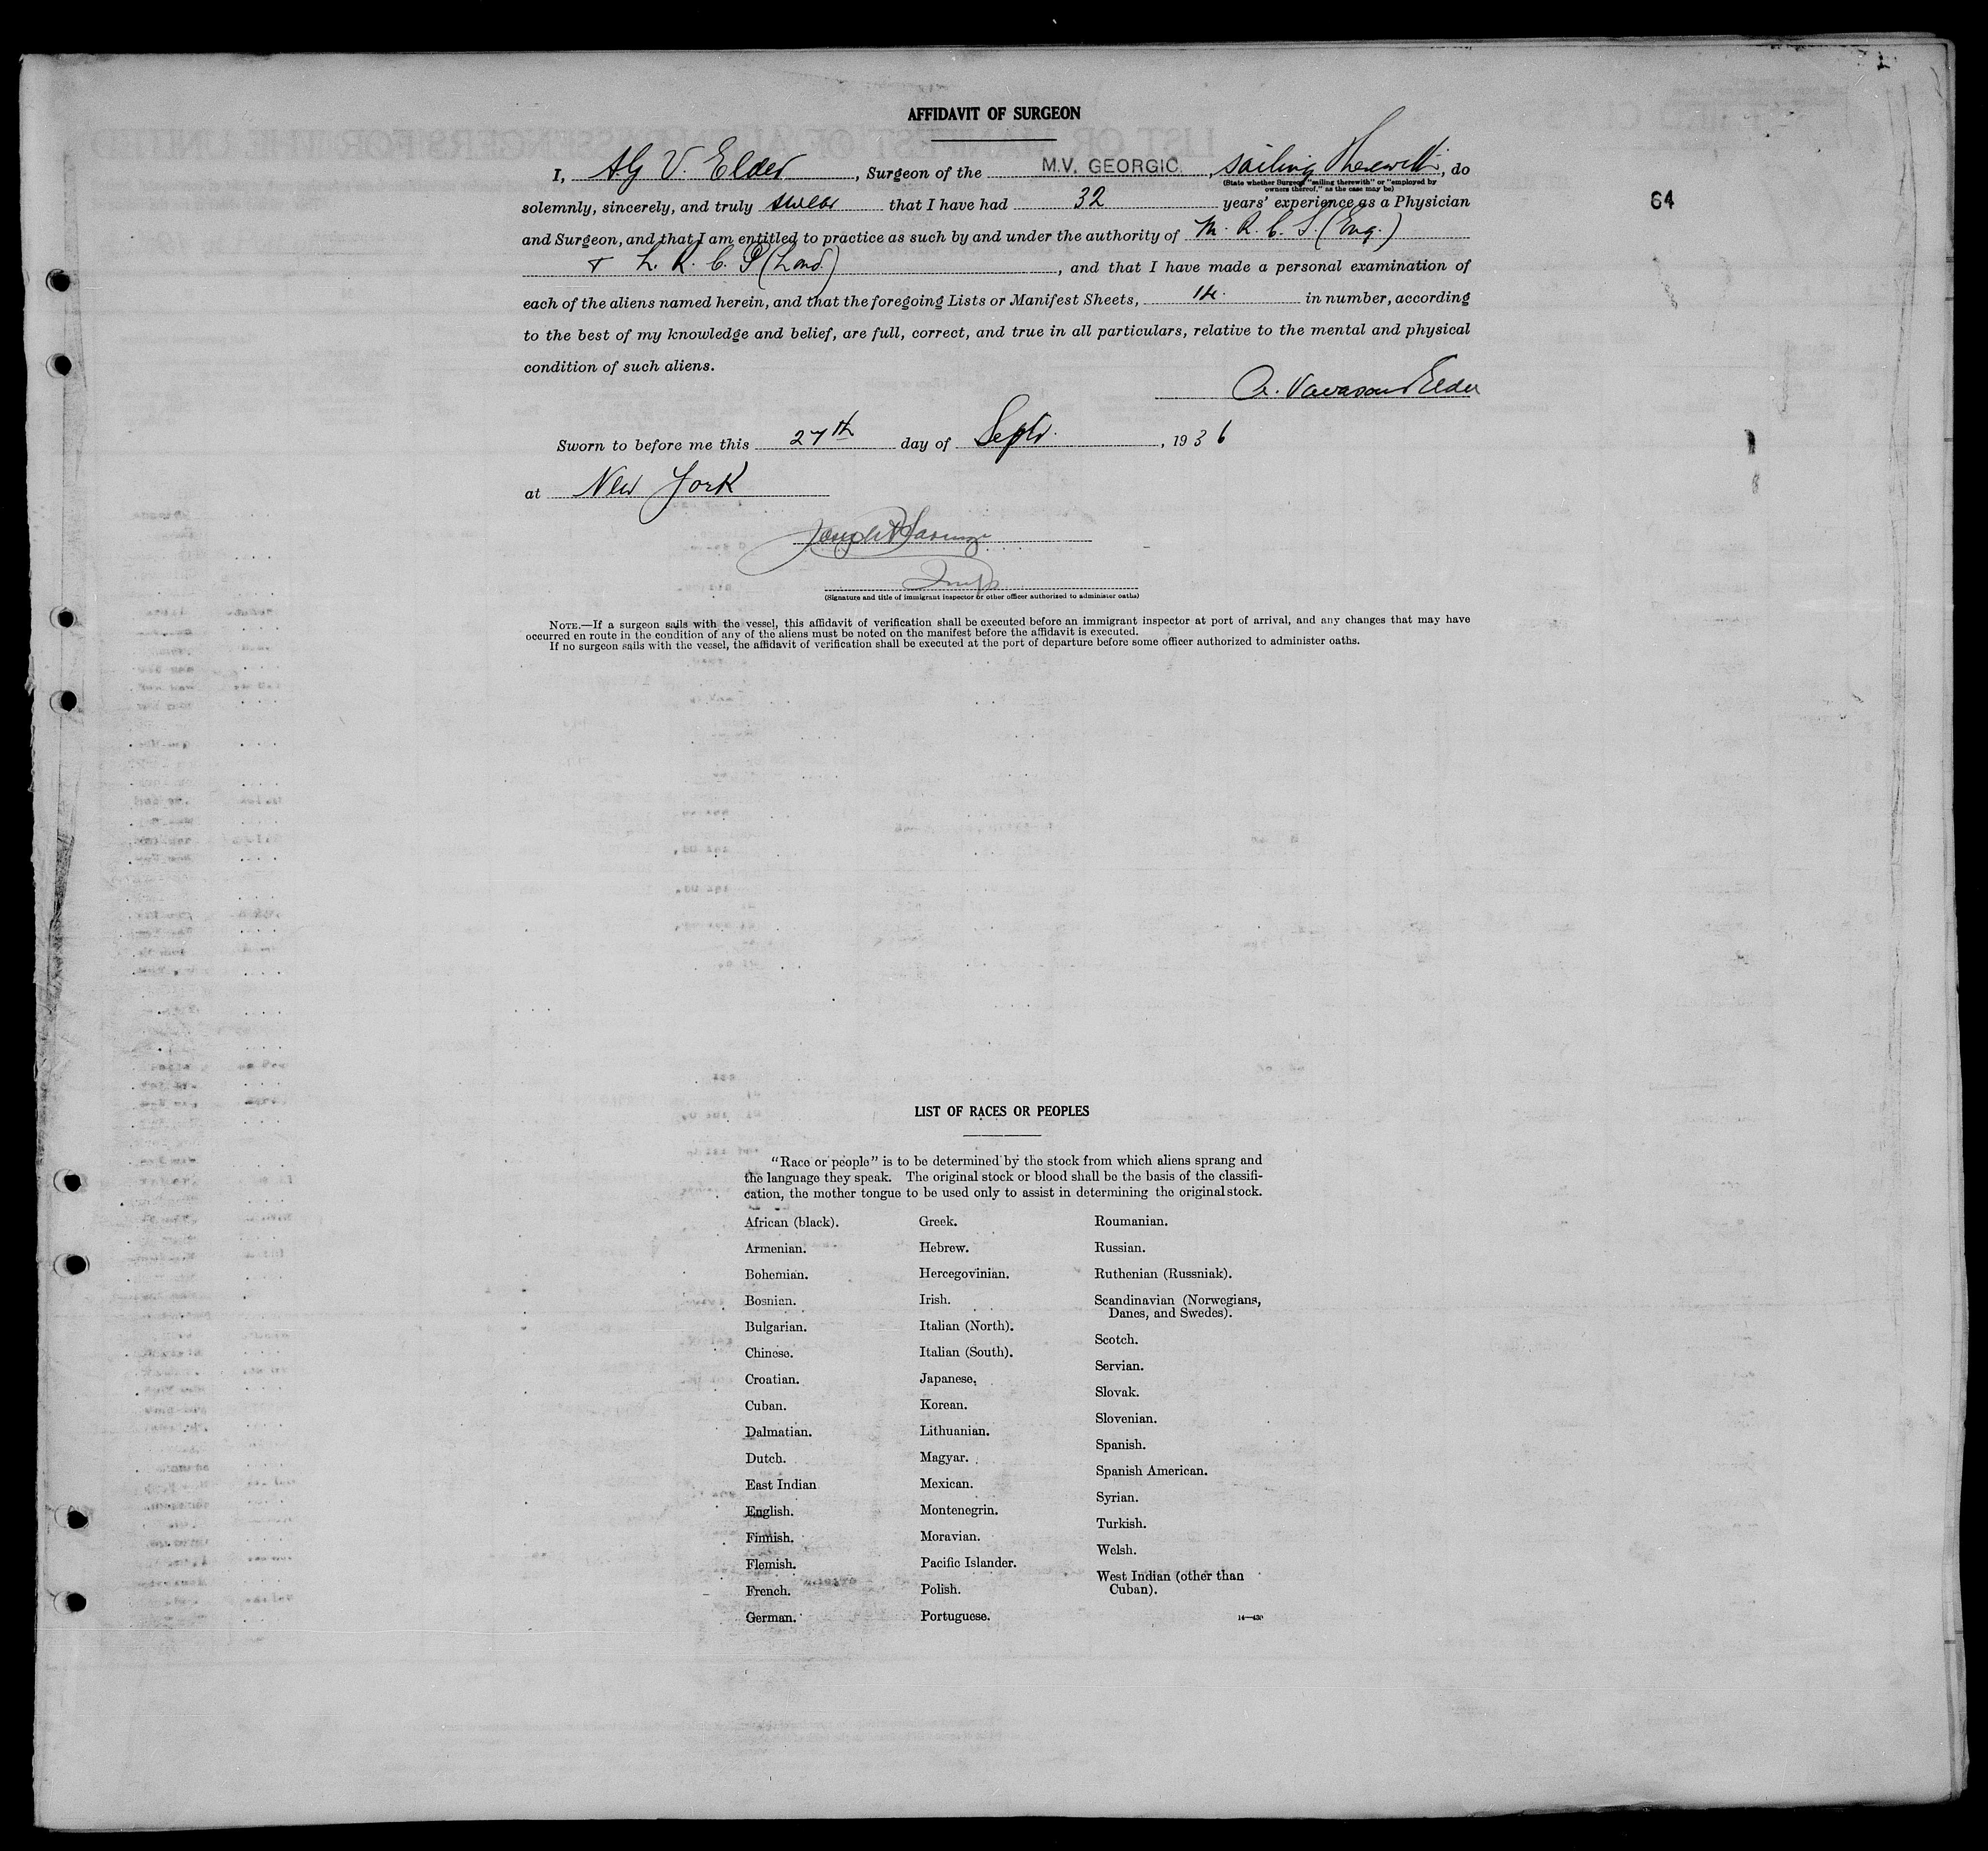 AFFIDAVIT OF SURGEON
I, A G V. Elder, Surgeon of the M.V. GEORGIC, sailing therewith, do
(State whether Surgeon "sailing therewith" or "employed by
owners thereof," as the case may be)
64
solemnly, sincerely, and truly swear that I have had 32 years' experience as a Physician
and Surgeon, and that I am entitled to practice as such by and under the authority of M. R. C. S. (Eng.)
+ L. R. C. P (Lond.), and that I have made a personal examination of
each of the aliens named herein, and that the foregoing Lists or Manifest Sheets, 14 in number, according
to the best of my knowledge and belief, are full, correct, and true in all particulars, relative to the mental and physical
condition of such aliens.
A. Vavasour Elder
Sworn to before me this 27th day of Sept., 1936
at New York
(Signature and title of immigrant inspector or other officer authorized to administer oaths)
NOTE.—If a surgeon sails with the vessel, this affidavit of verification shall be executed before an immigrant inspector at port of arrival, and any changes that may have
occurred en route in the condition of any of the aliens must be noted on the manifest before the affidavit is executed.
If no surgeon sails with the vessel, the affidavit of verification shall be executed at the port of departure before some officer authorized to administer oaths.
LIST OF RACES OR PEOPLES
"Race or people" is to be determined by the stock from which aliens sprang and
the language they speak. The original stock or blood shall be the basis of the classifi-
cation, the mother tongue to be used only to assist in determining the original stock.
African (black).
Armenian.
Bohemian.
Bosnian.
Bulgarian.
Chinese.
Croatian.
Cuban.
Dalmatian.
Dutch.
East Indian
English.
Finnish.
Flemish.
French.
German.
Greek.
Hebrew.
Hercegovinian.
Irish.
Italian (North).
Italian (South).
Japanese.
Korean.
Lithuanian.
Magyar.
Mexican.
Montenegrin.
Moravian.
Pacific Islander.
Polish.
Portuguese.
Roumanian.
Russian.
Ruthenian (Russniak).
Scandinavian (Norwegians,
Danes, and Swedes).
Scotch.
Servian.
Slovak.
Slovenian.
Spanish.
Spanish American.
Syrian.
Turkish.
Welsh.
West Indian (other than
Cuban).
14—430